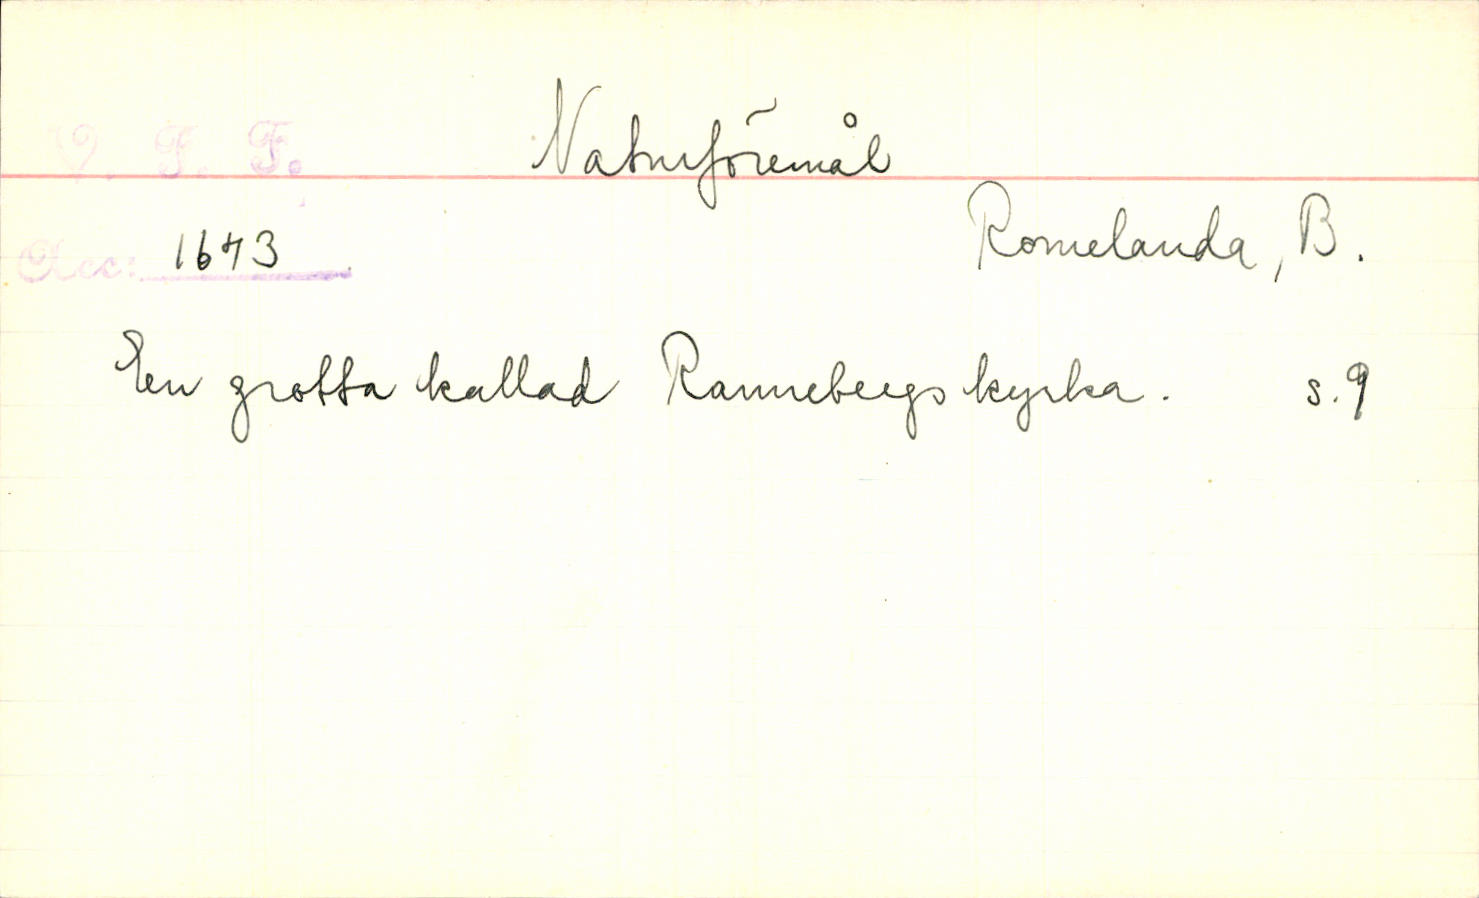 V. F. F.
Naturföremål
Romelanda, B.
Acc: 1673
En grotta kallad Rannebergs kyrka. s. 9